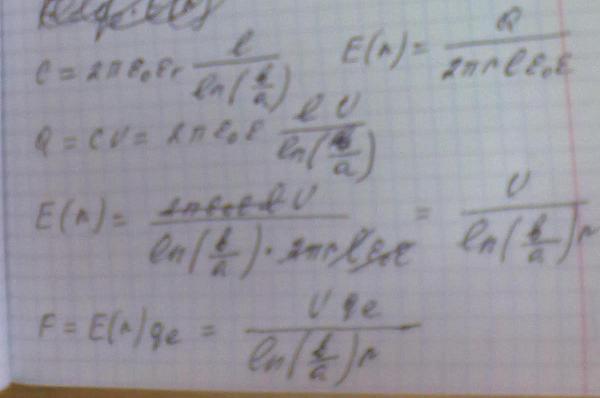 C = 2πε₀εr l / ln(b/a)    E(r) = Q / 2πrlε₀ε
Q = CU = 2πε₀ε l U / ln(b/a)
E(r) = 2πε₀εl U / ln(b/a) · 2πrlε₀ε = U / ln(b/a) r
F = E(r) qe = U qe / ln(b/a) r